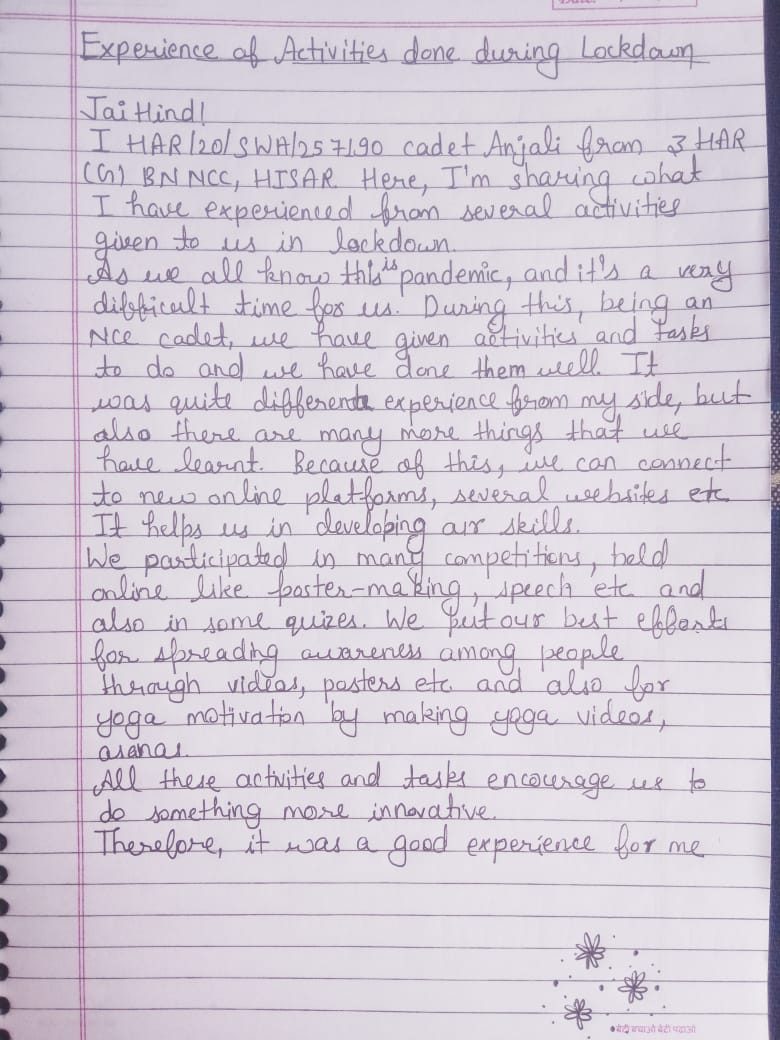 Experience of Activities done during Lockdown
Jai Hind!
I HAR/20/SWA/257190 cadet Anjali from 3 HAR
(G) BN NCC, HISAR. Here, I'm sharing what
I have experienced from several activities
given to us in lockdown.
As we all know this is pandemic, and it's a very
difficult time for us. During this, being an
NCC cadet, we have given activities and tasks
to do and we have done them well. It
was quite different experience from my side, but
also there are many more things that we
have learnt. Because of this, we can connect
to new online platforms, several websites etc
It helps us in developing our skills.
We participated in many competitions, held
online like poster-making, speech etc and
also in some quizes. We put our best efforts
for spreading awareness among people
through videos, posters etc. and also for
yoga motivation by making yoga videos,
asanas.
All these activities and tasks encourage us to
do something more innovative.
Therefore, it was a good experience for me
बेटी बचाओ बेटी पढाओ